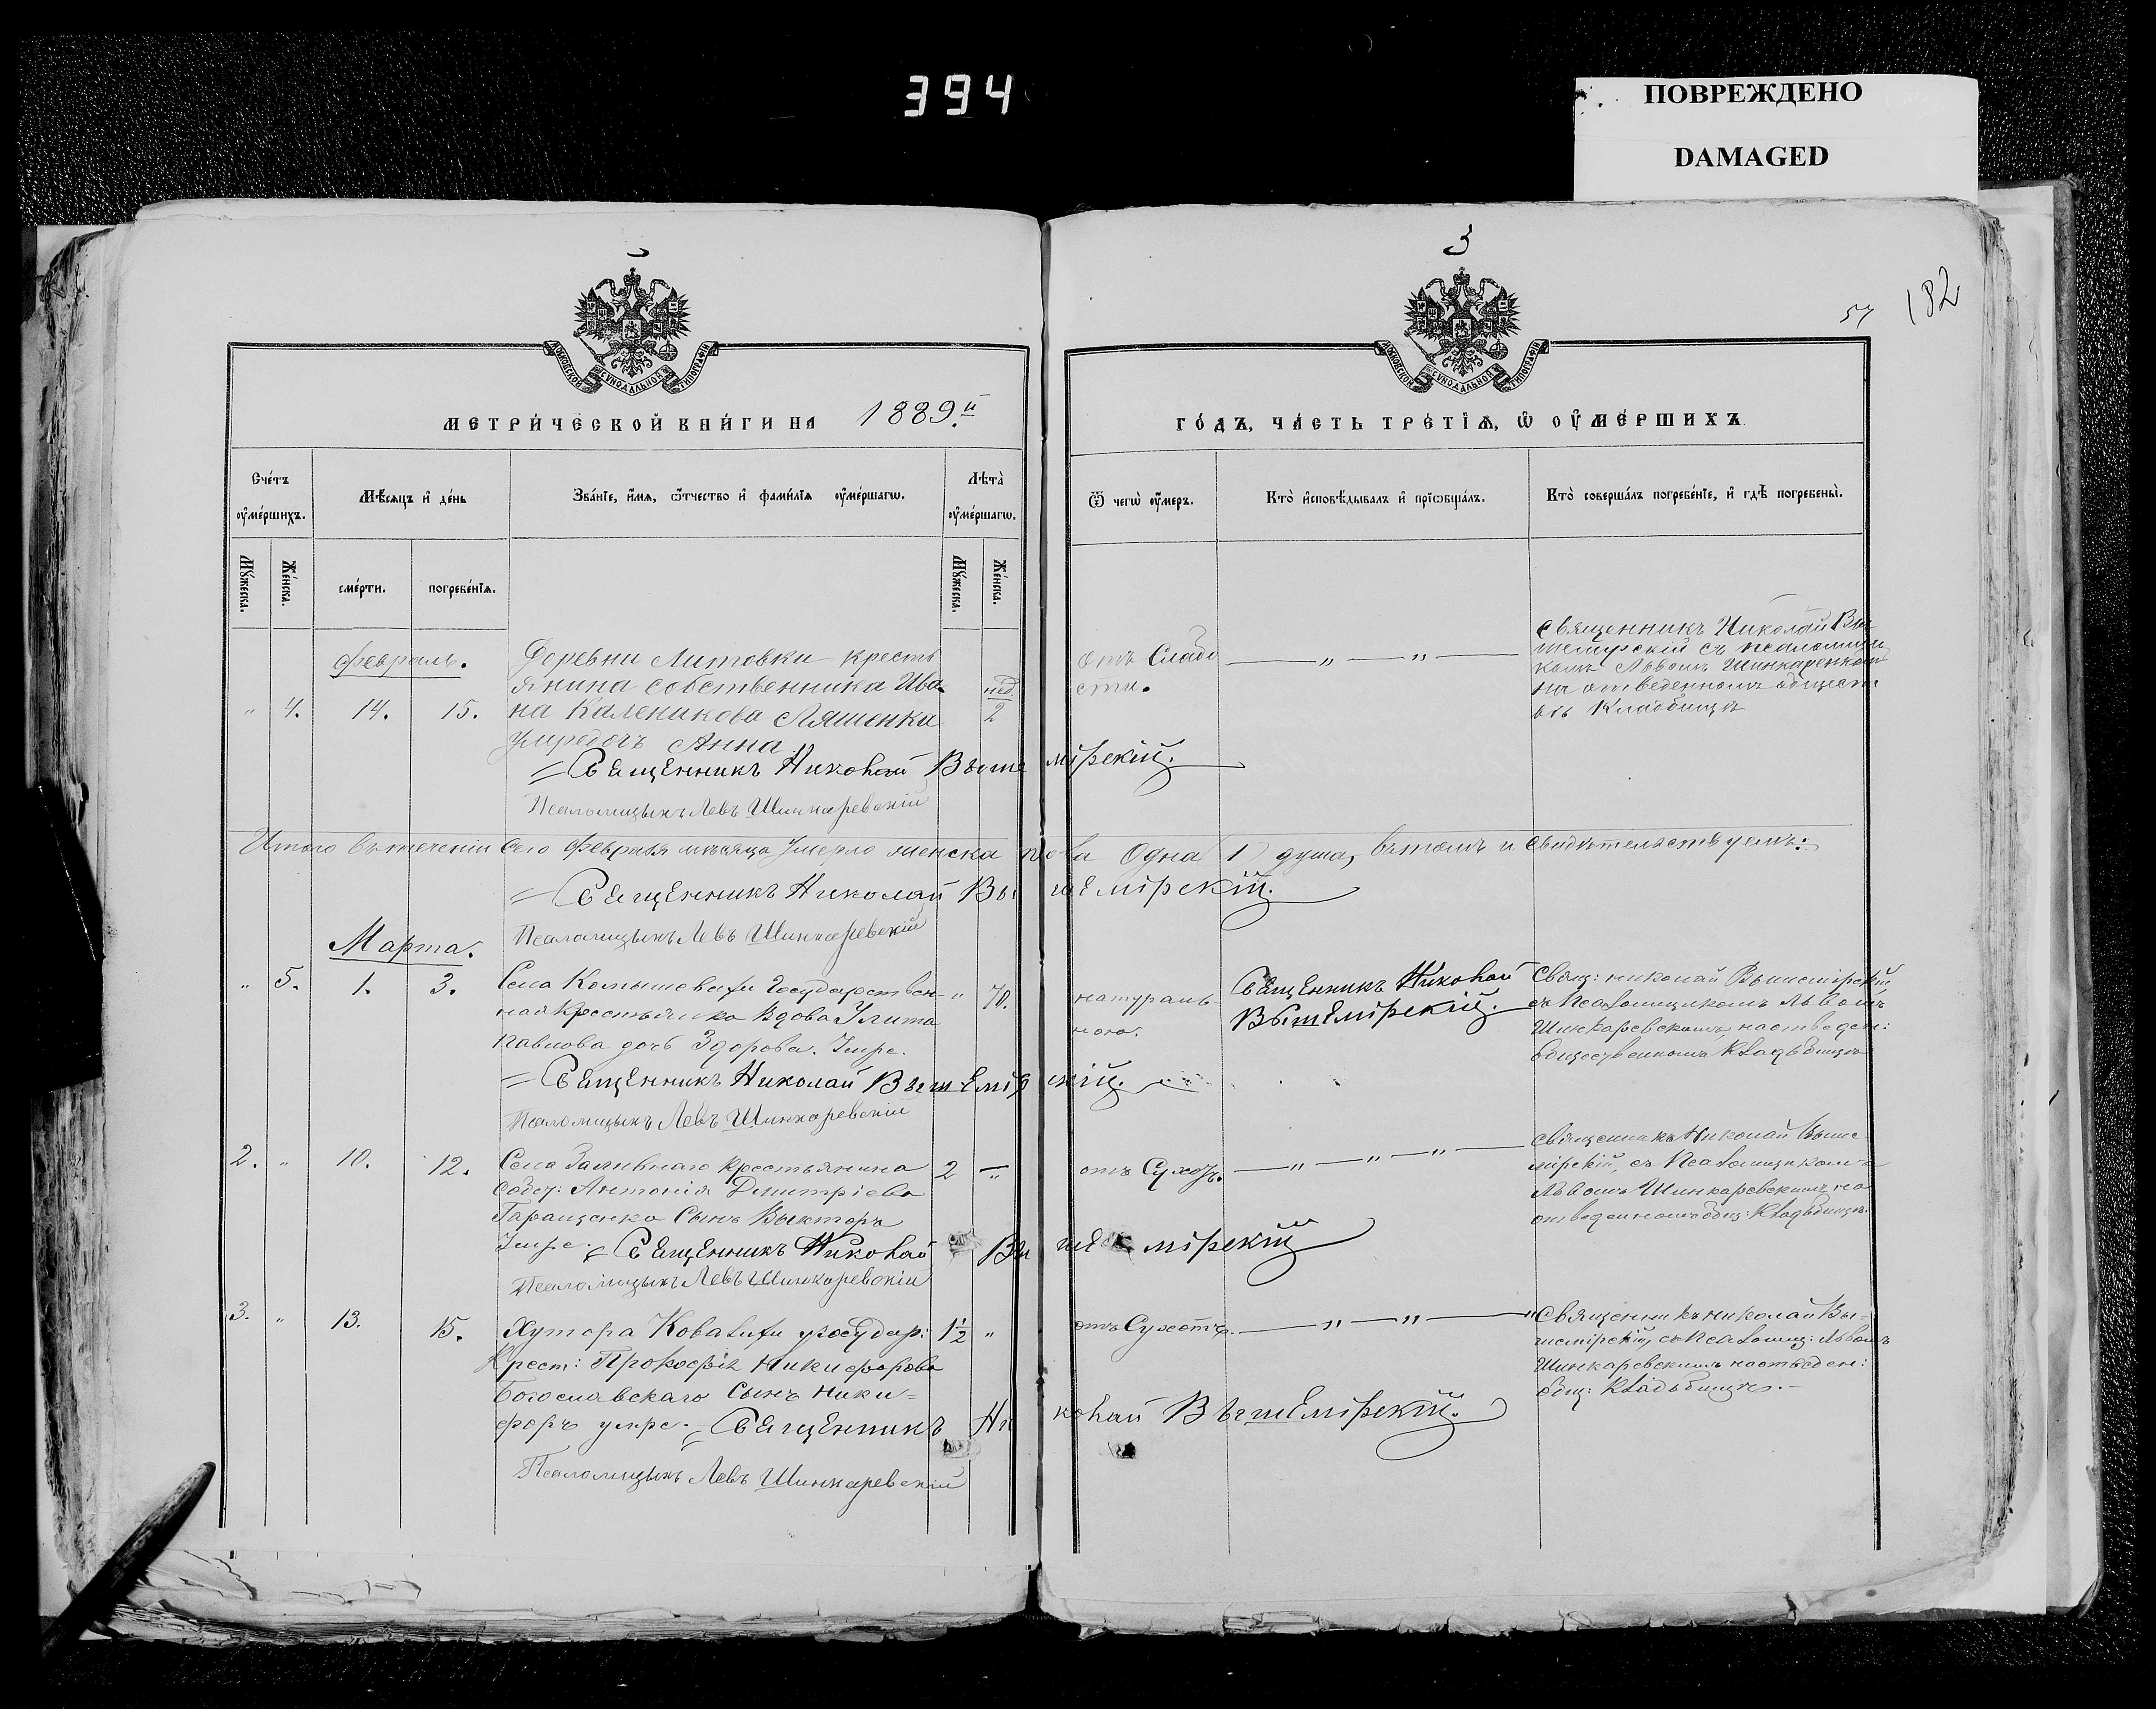 394
ПОВРЕЖДЕНО
DAMAGED
3
3
54
182
МОСКОВСКОЙ СѴНОДАЛЬНОЙ ТИПОГРАФІИ
МОСКОВСКОЙ СѴНОДАЛЬНОЙ ТИПОГРАФІИ
МЕТРИ́ЧЕСКОЙ КНИ́ГИ НА 1889.й
ГО́ДЪ, ЧА́СТЬ ТРЕ́ТІѦ, Ѡ ОУ҆МЕ́РШИХЪ
Сче́тъ оу҆ме́ршихъ.
Мѣ́сяцъ и҆ де́нь
Зва́нїе, и҆́мя, ѻ҆́тчество и҆ фами́лїя оу҆ме́ршагѡ.
Лѣта̀ оу҆ме́ршагѡ.
Ѿ чегѡ̀ оу҆́меръ.
Кто̀ и҆сповѣ́дывалъ и҆ прїѡбща́лъ.
Кто̀ соверша́лъ погребе́нїе, и҆ гдѣ̀ погребены̀.
Мꙋ́жеска.
Же́нска.
сме́рти.
погребе́нїѧ.
Мꙋ́жеска.
Же́нска.
Февраль.
" 4. 14. 15.
Деревни Литовки кресть
янина собственника Ива-
на Каленикова Ляшенка
умре дочь Анна
нед.
2
отъ Слабо
сти.
— " — " —
Священникъ Николай Вы-
шемірскій съ псаломщи
комъ Львомъ
на отведенномъ обществ
кладбищѣ
= Священникъ Николай Вышемірскій.
Псаломщыкъ Левъ Шинкаревскій
Итого въ теченіи сего Февраля мѣсяца умерло женска пола одна 1) душа, въ томъ и свидѣтельствуемъ:
= Священникъ Николай Вышемірскій.
Псаломщыкъ Левъ Шинкаревскій
Марта.
" 5. 1. 3.
Села Комышевахи Государствен-
ная крестьянка вдова Улита
Павлова дочь Здорова. Умре.
" 70.
натураль-
ною.
Священникъ Николай
Вышемірскій.
Свящ: Николай Вышемірскій
съ Псаломщикомъ Львомъ
Шинкаревскимъ, на отведен:
общественномъ кладбищѣ
= Священникъ Николай Вышемірскій.
Псаломщыкъ Левъ Шинкаревскій
2. " 10. 12.
Села Заливнаго крестьянина
собст: Антонія Дмитріева
Гаращенка Сынъ Викторъ
Умре.
2 "
отъ Сухотъ.
— " — " — " —
Священникъ Николай Выше
мірскій, съ Псаломщикомъ
Львомъ Шинкаревскимъ, на
отведенномъ общ: кладбищѣ.
= Священникъ Николай Вышемірскій
Псаломщыкъ Левъ Шинкаревскій
3. " 13. 15.
Хутора Ковалихи государ:
Крест: Прокофія Никифорова
Богославскаго Сынъ Ники-
форъ умре.
1½ "
отъ Сухотъ.
— " — " — "
Священникъ Николай Вы-
шемірскій, съ Псаломщ: Львомъ
Шинкаревскимъ на отведен:
общ: кладбищѣ.
= Священникъ Николай Вышемірскій.
Псаломщыкъ Левъ Шинкаревскій